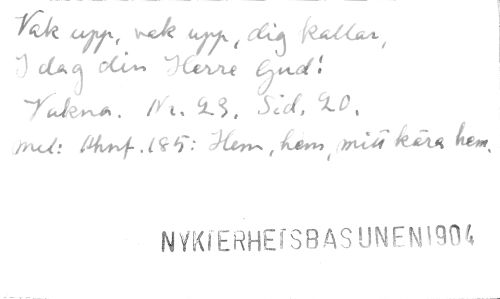 Vak upp, vak upp, dig kallar,
I dag din Herre Gud!
Vakna. Nr. 23. Sid. 20.
mel: Ahnf. 185: Hem, hem, mitt kära hem.
NYKTERHETSBASUNEN 1904